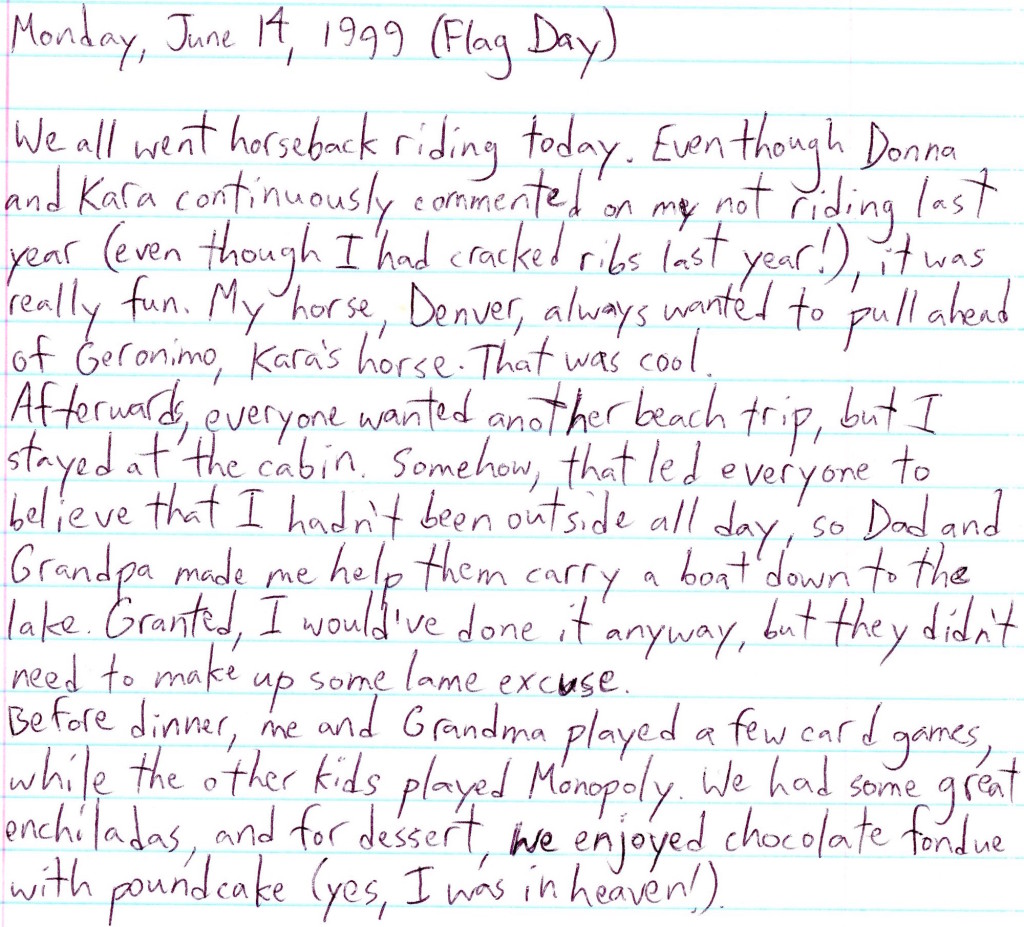 Monday, June 14, 1999 (Flag Day)
We all went horseback riding today. Even though Donna
and Kara continuously commented on my not riding last
year (even though I had cracked ribs last year!), it was
really fun. My horse, Denver, always wanted to pull ahead
of Geronimo, Kara's horse. That was cool.
Afterwards, everyone wanted another beach trip, but I
stayed at the cabin. Somehow, that led everyone to
believe that I hadn't been outside all day, so Dad and
Grandpa made me help them carry a boat down to the
lake. Granted, I would've done it anyway, but they didn't
need to make up some lame excuse.
Before dinner, me and Grandma played a few card games,
while the other kids played Monopoly. We had some great
enchiladas, and for dessert, we enjoyed chocolate fondue
with poundcake (yes, I was in heaven!).